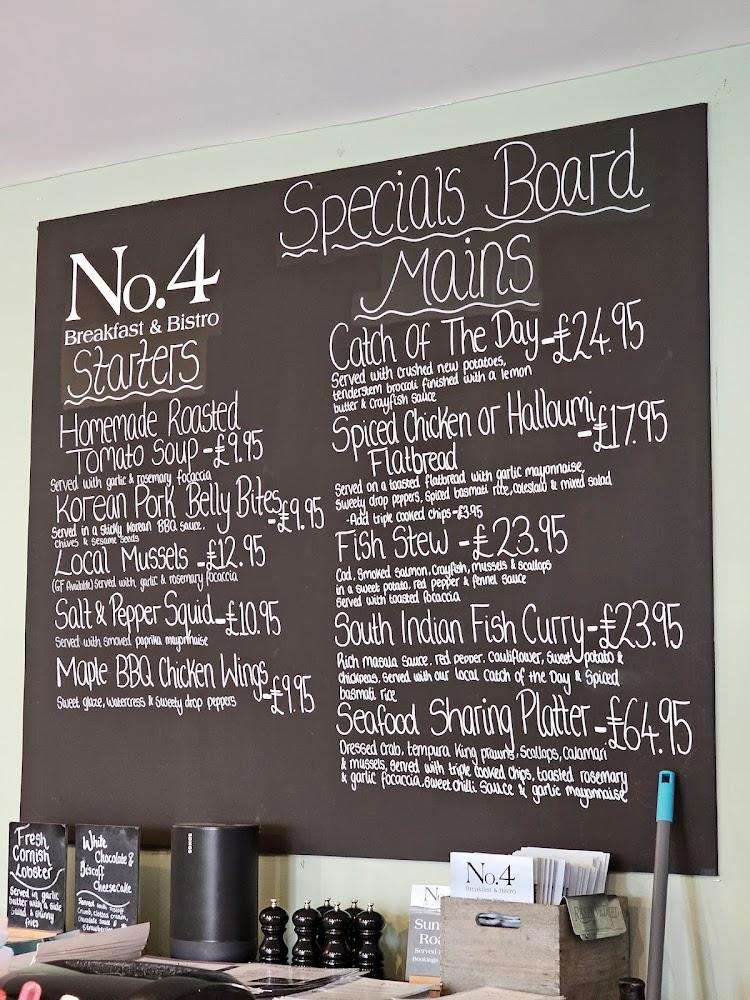 Specials Board
No.4
Breakfast & Bistro
Starters
Homemade Roasted
Tomato Soup - £9.95
Served with garlic & rosemary focaccia
Korean Pork Belly Bites
- £9.95
Served in a sticky Korean BBQ sauce,
chives & sesame seeds
Local Mussels - £12.95
(GF Available) Served with garlic & rosemary focaccia
Salt & Pepper Squid - £10.95
Served with smoked paprika mayonnaise
Maple BBQ Chicken Wings
- £9.95
Sweet glaze, watercress & sweety drop peppers
Mains
Catch Of The Day - £24.95
Served with crushed new potatoes,
tenderstem broccoli finished with a lemon
butter & crayfish sauce
Spiced Chicken or Halloumi
Flatbread - £17.95
Served on a toasted flatbread with garlic mayonnaise,
sweety drop peppers, spiced basmati rice, coleslaw & mixed salad
- Add triple cooked chips - £3.95
Fish Stew - £23.95
Cod, smoked salmon, crayfish, mussels & scallops
in a sweet potato, red pepper & fennel sauce
served with toasted focaccia
South Indian Fish Curry - £23.95
Rich masala sauce, red pepper, cauliflower, sweet potato &
chickpeas, served with our local catch of the Day & spiced
basmati rice
Seafood Sharing Platter - £64.95
Dressed crab, tempura king prawns, scallops, calamari
& mussels, served with triple cooked chips, toasted rosemary
& garlic focaccia, sweet chilli sauce & garlic mayonnaise
Fresh
Cornish
Lobster
Served in garlic
butter with a side
salad & skinny
fries
White
Chocolate &
Biscoff
Cheesecake
Served with
crumb, clotted cream,
chocolate sauce &
strawberries
SONOS
No.4
Breakfast & Bistro
Sun
Roa
Served
Bookings